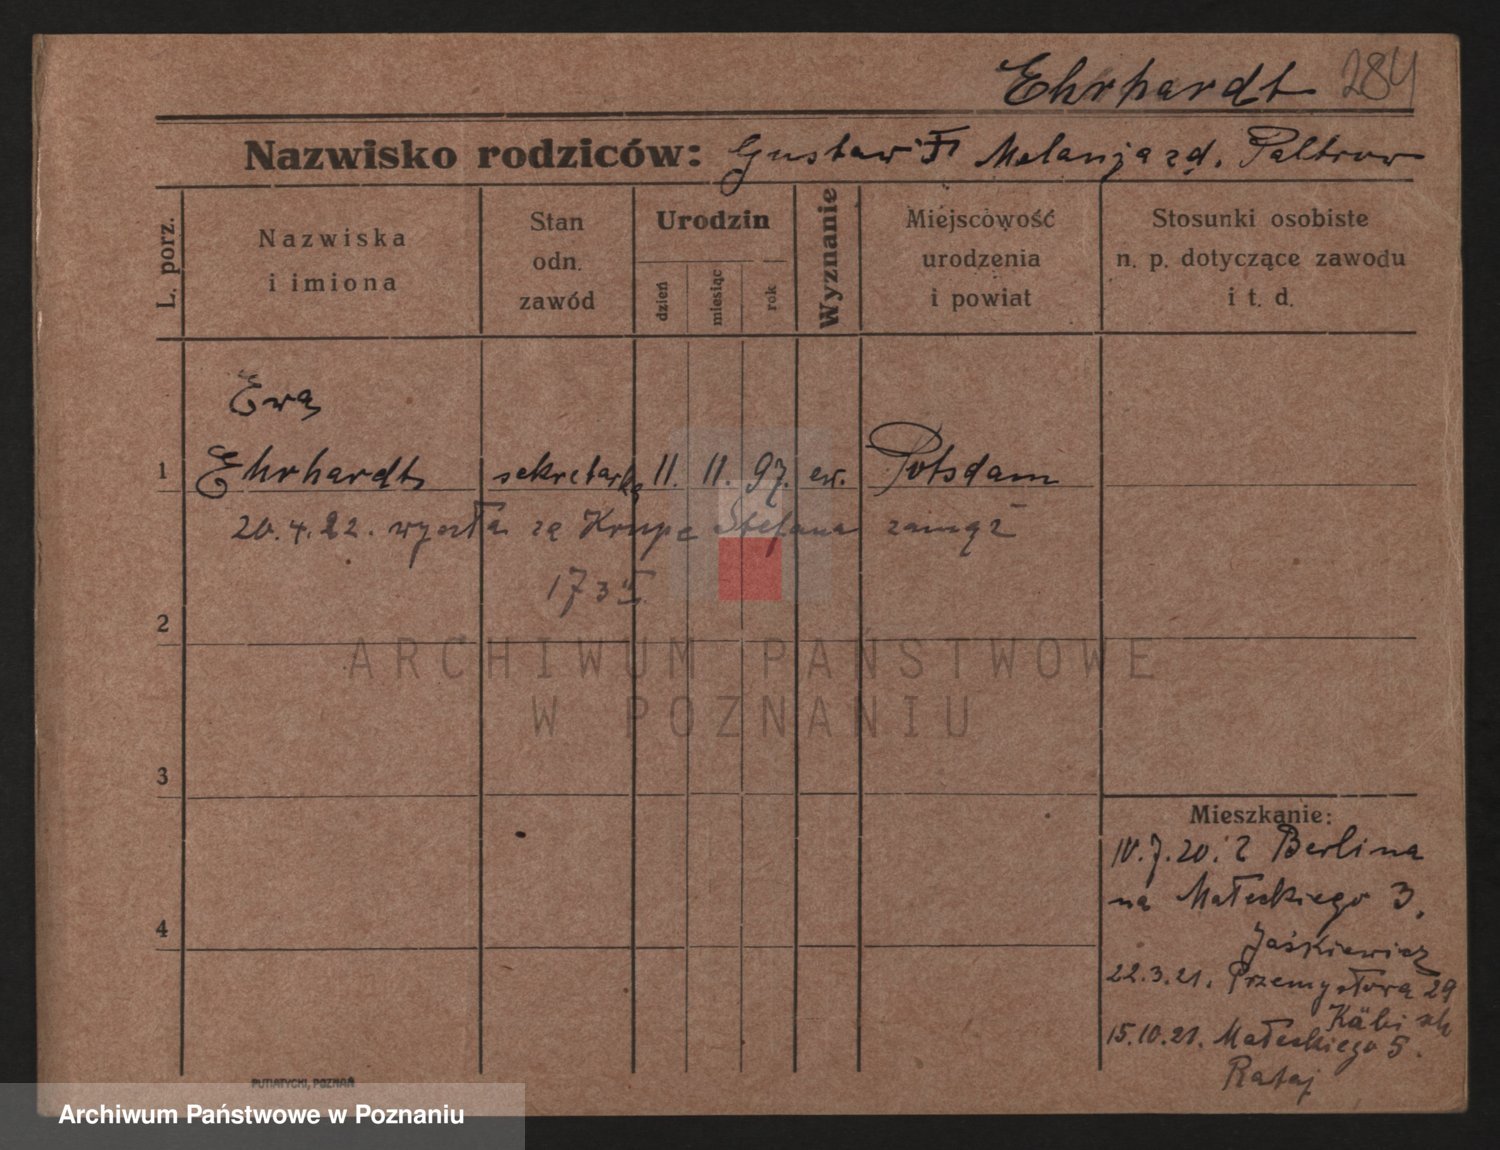 Ehrhardt 284
Nazwisko rodziców: Gustaw Fr Melanja zd. Paltrow
L. porz.
Nazwiska
i imiona
Stan
odn.
zawód
Urodzin
dzień
miesiąc
rok
Wyznanie
Miejscowość
urodzenia
i powiat
Stosunki osobiste
n. p. dotyczące zawodu
i t. d.
Ewa
1 Ehrhardt sekretarka 11. 11. 97. ew. Potsdam
20.4.22. wyszła za Krupę Stefana zamąż
2
ARCHIWUM PAŃSTWOWE
W POZNANIU
3
Mieszkanie:
10.7.20. z Berlina
na Małeckiego 3.
Jaśkiewicz
4
22.3.21. Przemysłowa 29
15.10.21. Małeckiego 5.
Rataj
PUTIATYCKI, POZNAŃ
Archiwum Państwowe w Poznaniu